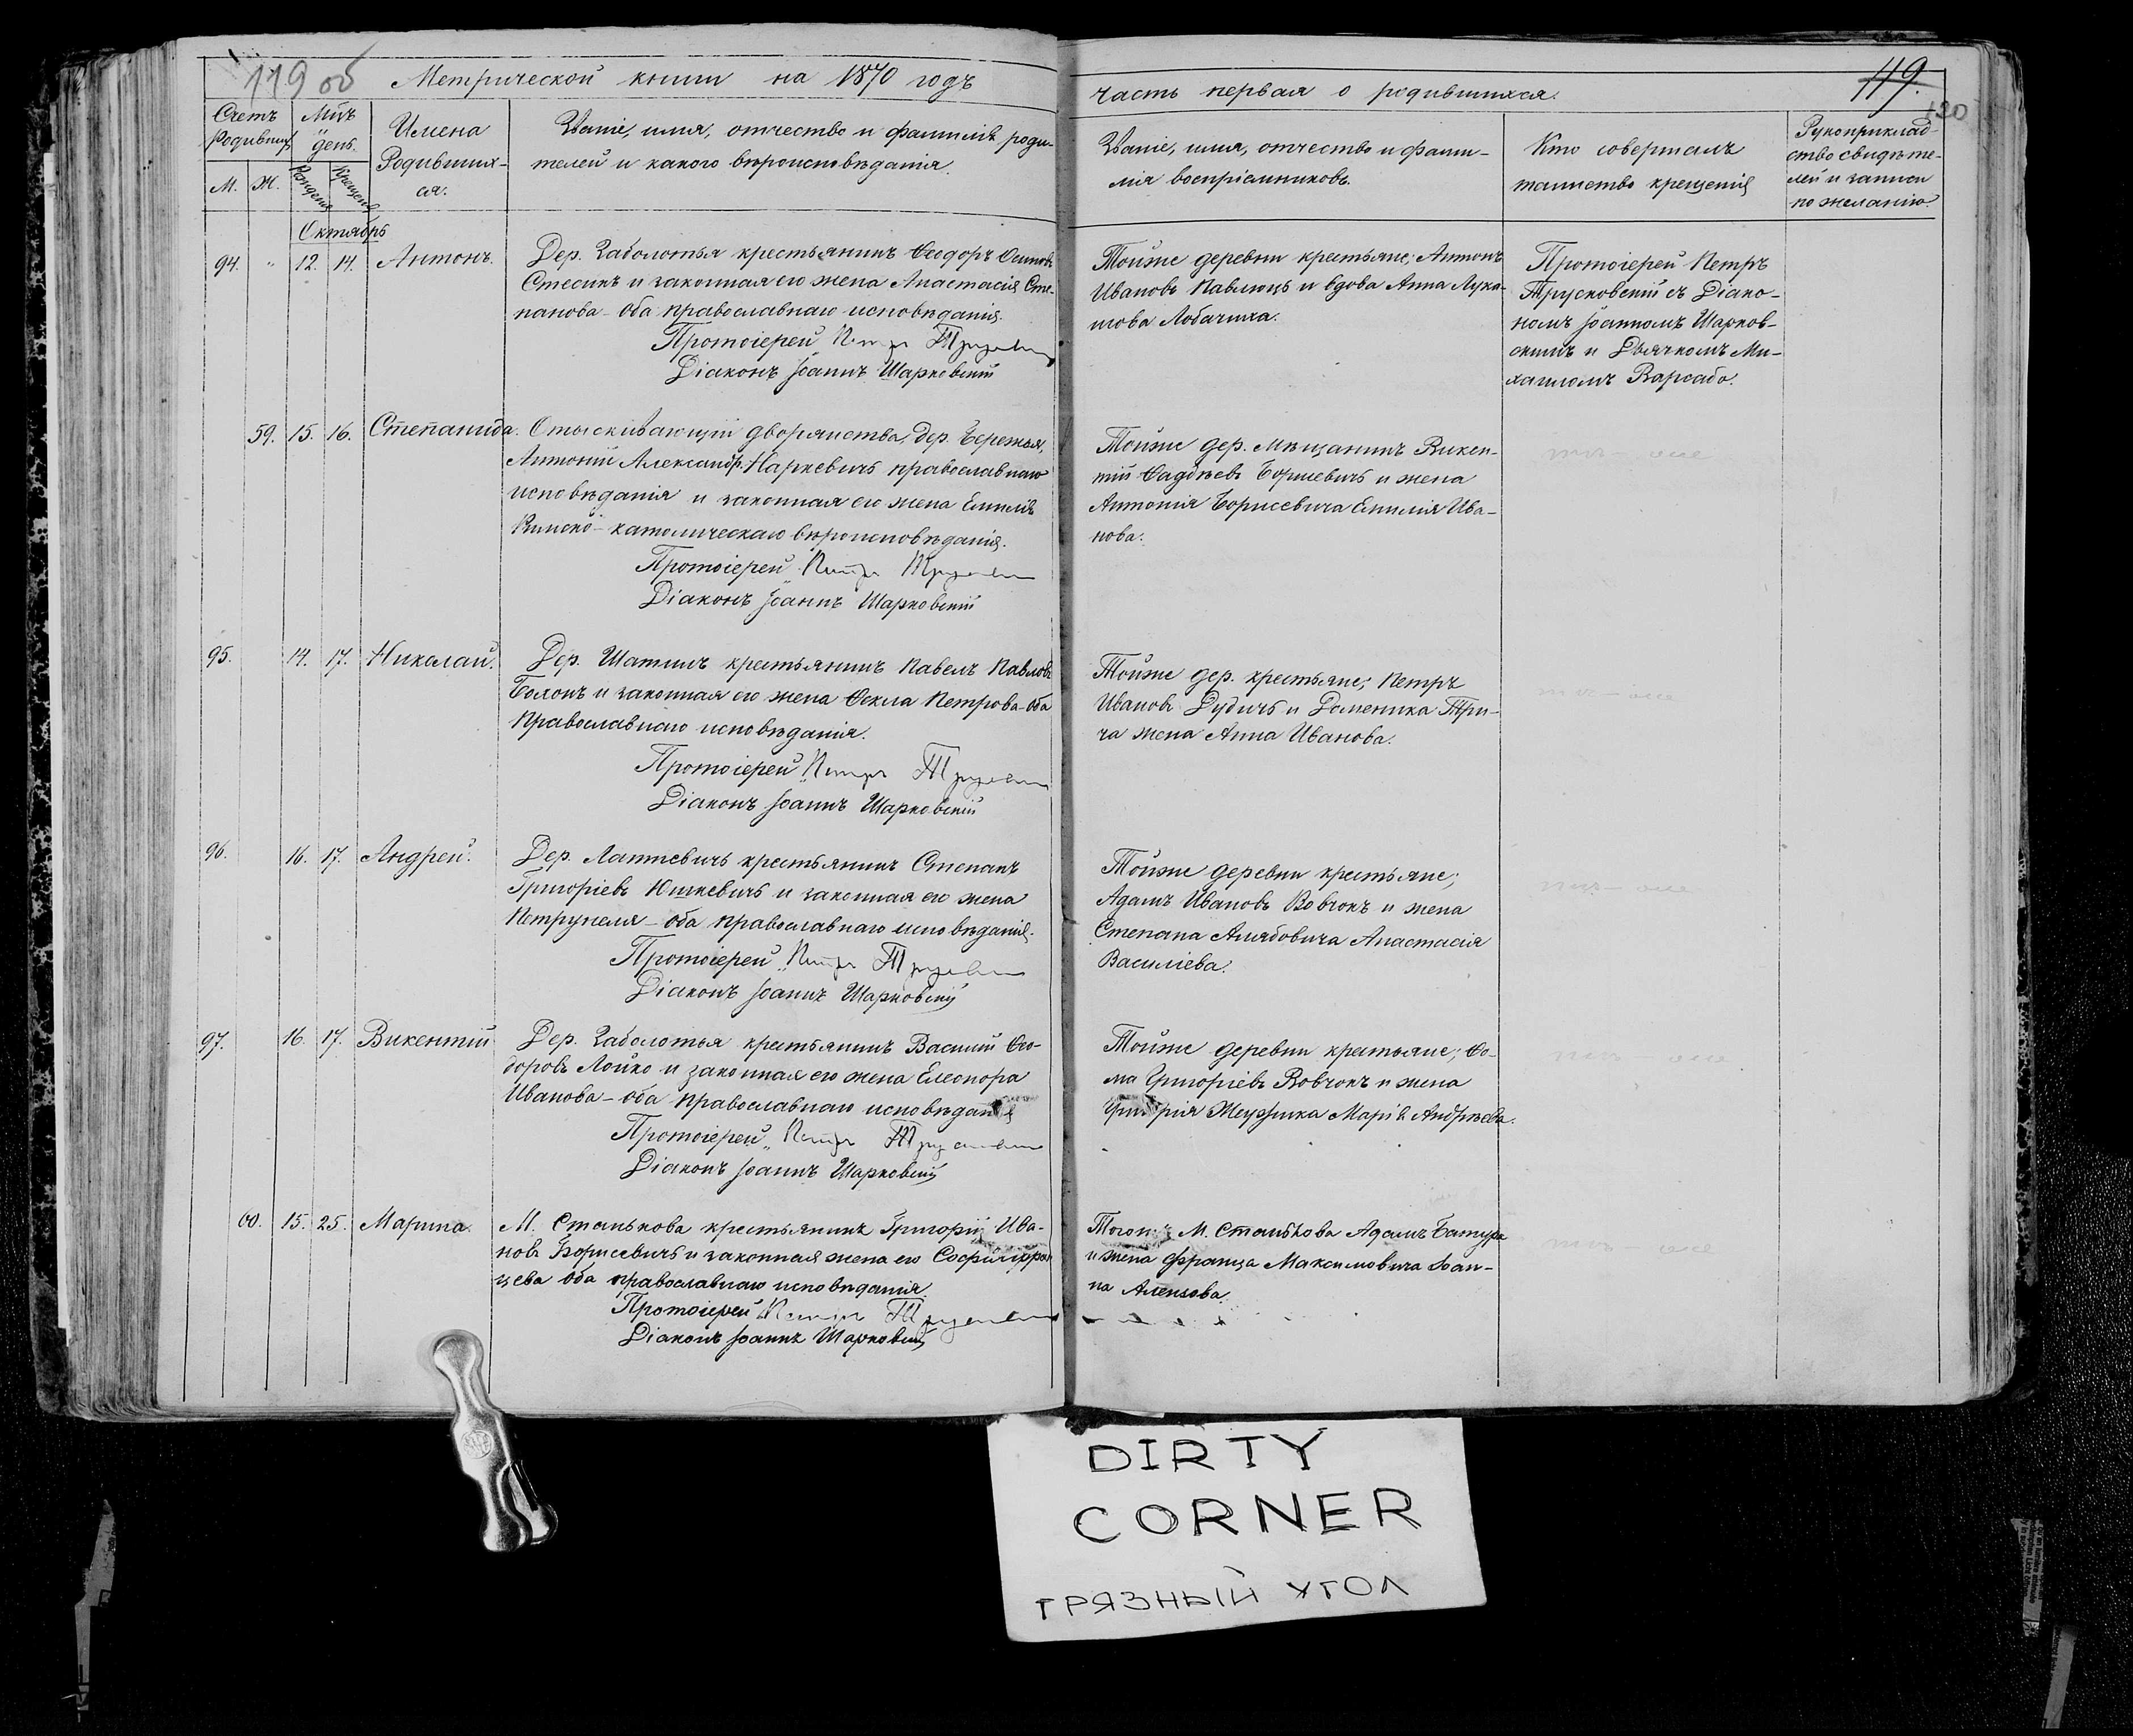 119 об
Метрической книги на 1870 годъ
часть первая о родившихся.
119.
120
Счетъ Родившихся
М. Ж.
Мцъ и день.
Рожденія Крещенія
Имена
Родивших-
ся.
Званіе, имя, отчество и фамилія роди-
телей и какого вѣроисповѣданія.
Званіе, имя, отчество и фами-
лія воспріемниковъ.
Кто совершалъ
таинство крещенія
Рукоприклад-
ство свидѣте-
лей и записи
по желанію.
Октябрь
94. " 12. 14. Антонъ.
Дер. Заболотья крестьянинъ Ѳеодоръ Осиповъ
Стесикъ и законная его жена Анастасія Сте-
панова - оба православнаго исповѣданія.
Протоіерей Петръ Трусковскій
Діаконъ Іоаннъ Шарковскій
Тойже деревни крестьяне; Антонъ
Ивановъ Павлюць и вдова Анна Лука-
шова Лобачиха.
Протоіерей Петръ
Трусковскій съ Діако-
номъ Іоанномъ Шарков-
скимъ и Дьячкомъ Ми-
хаиломъ Варсабо.
59. 15. 16. Степанида.
Отыскивающій дворянства, дер. Бережья,
Антоній Александр. Наркевичъ православнаго
исповѣданія и законная его жена Емилія
Римско-католическаго вѣроисповѣданія.
Протоіерей Петръ Трусковскій
Діаконъ Іоаннъ Шарковскій
Тойже дер. мѣщанинъ Викен-
тій Ѳадѣевъ Борисевичъ и жена
Антонія Борисевича Емилія Ива-
нова.
тѣ-же
95. 14. 17. Николай.
Дер. Шатилъ крестьянинъ Павелъ Павловъ
Болонъ и законная его жена Ѳекла Петрова - оба
Православнаго исповѣданія.
Протоіерей Петръ Трусковскій
Діаконъ Іоаннъ Шарковскій
Тойже дер. крестьяне; Петръ
Ивановъ Дудичъ и Доменика Три-
ча жена Анна Иванова.
тѣ-же
96. 16. 17. Андрей.
Дер. Лаппевичь крестьянинъ Степанъ
Григоріевъ Юшкевичъ и законная его жена
Петрунеля - оба православнаго исповѣданія.
Протоіерей Петръ Трусковскій
Діаконъ Іоаннъ Шарковскій
Тойже деревни крестьяне;
Адамъ Ивановъ Вовчокъ и жена
Степана Анастасія
Василіева.
тѣ-же
97. 16. 17. Викентій
Дер. Заболотья крестьянинъ Василій Ѳео-
доровъ Лойко и законная его жена Елеонора
Иванова - оба православнаго исповѣданія
Протоіерей Петръ Трусковскій
Діаконъ Іоаннъ Шарковскій
Тойже деревни крестьяне; Ѳо-
ма Григоріевъ Вовчокъ и жена
Григорія Марія Андреева.
тѣ же
60. 15. 25. Марина.
М. Станькова крестьянинъ Григорій Ива-
новъ Борисевичъ и законная жена его Софія Фран-
цева оба православнаго исповѣданія.
Протоіерей Петръ Трусковскій
Діаконъ Іоаннъ Шарковскій
Тогожъ М. Станькова Адамъ Батура
и жена Франца Максимовича Іоан-
на Алексова.
тѣ же
DIRTY
CORNER
ГРЯЗНЫЙ УГОЛ